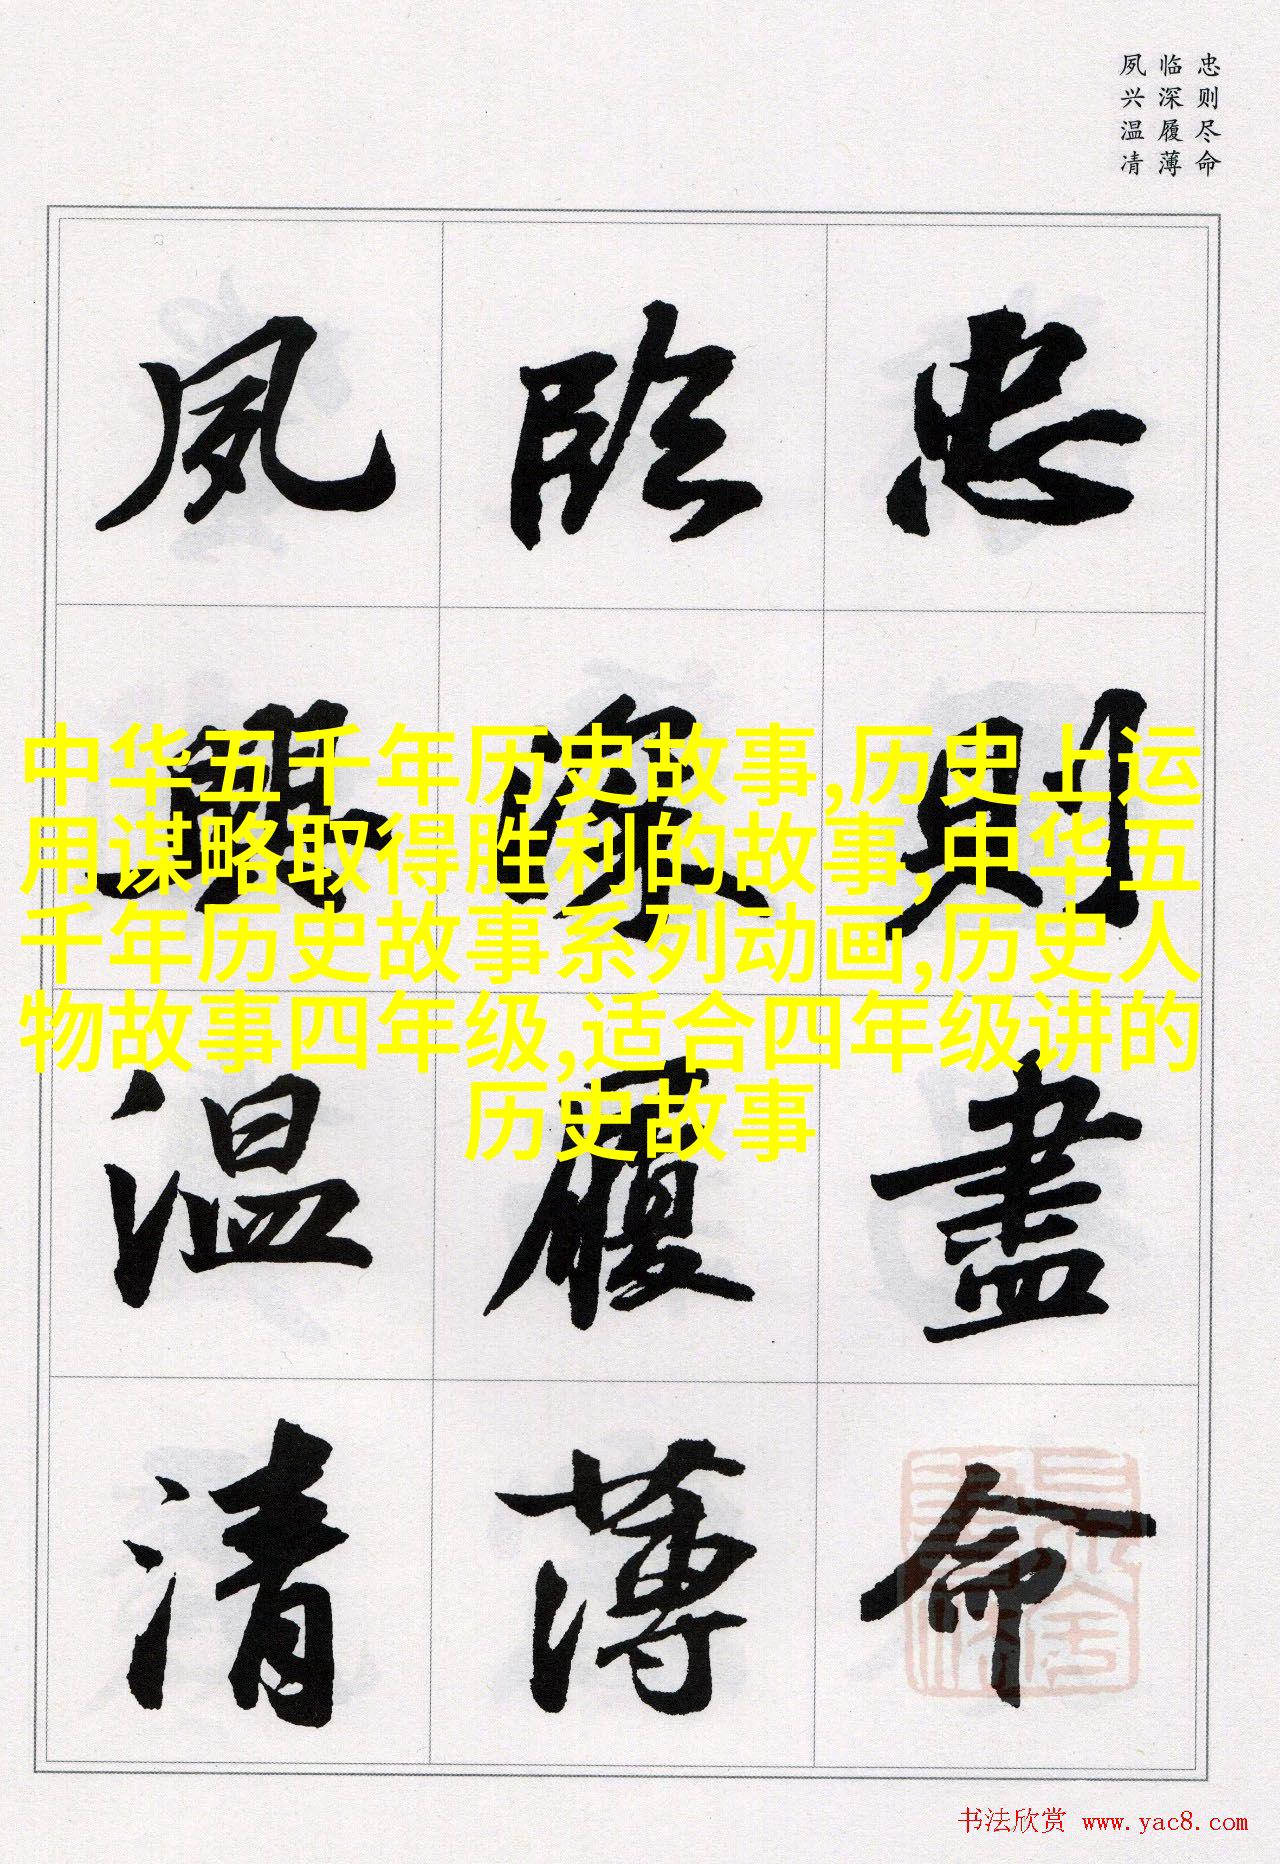 忠则尽命
临深履薄
夙兴温凊
忠則盡命
臨深履薄
夙興温清
中华五千年历史故事,历史上运
用谋略取得胜利的故事,中华五
千年历史故事系列动画,历史人
物故事四年级,适合四年级讲的
历史故事
书法欣赏 www.yac8.com